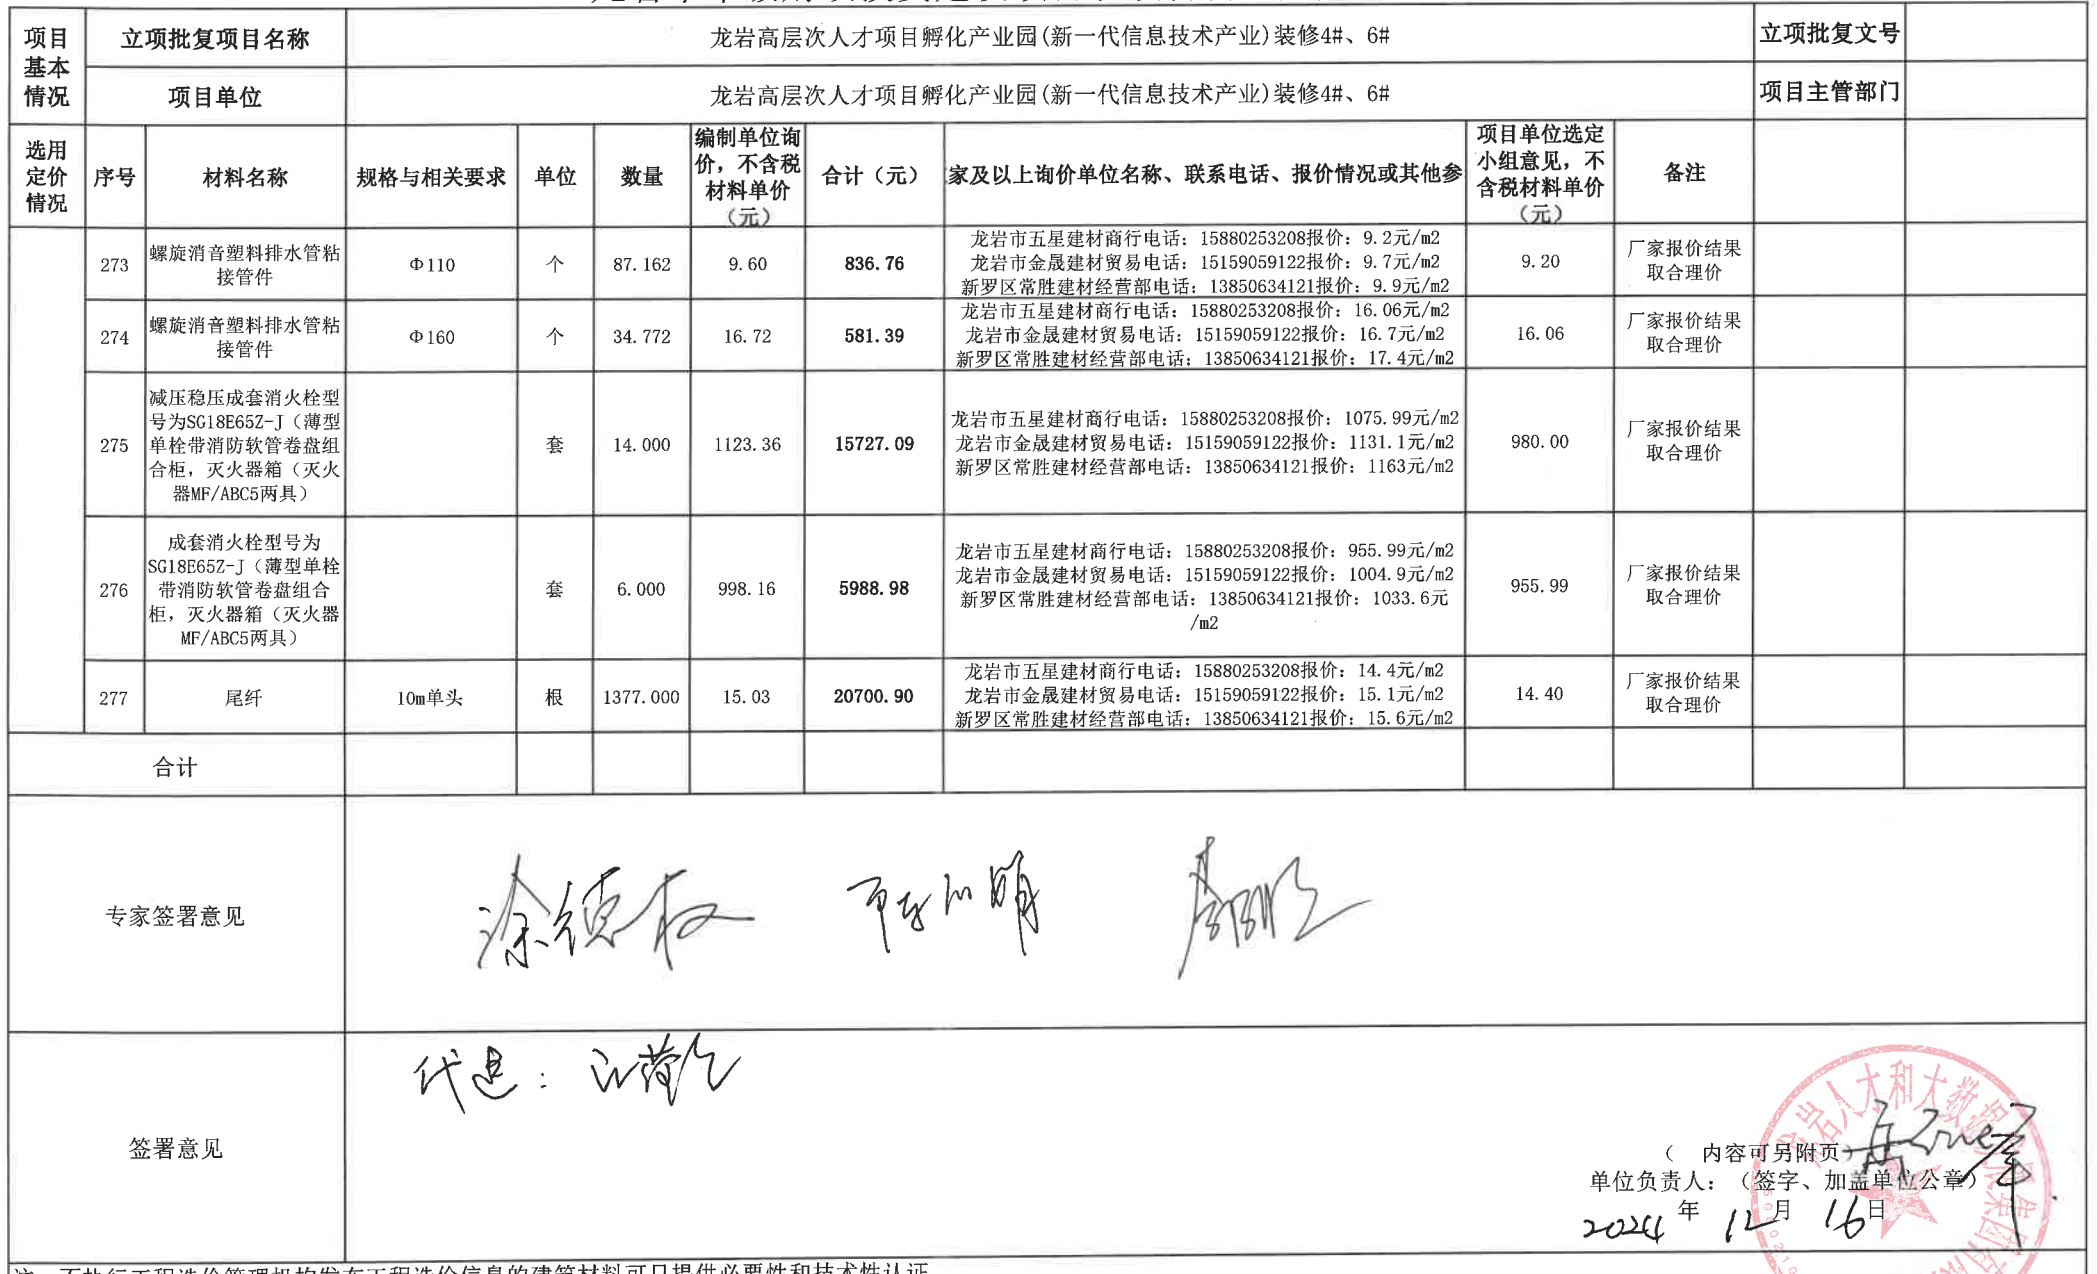 项目基本情况
立项批复项目名称
龙岩高层次人才项目孵化产业园(新一代信息技术产业)装修4#、6#
立项批复文号
项目单位
龙岩高层次人才项目孵化产业园(新一代信息技术产业)装修4#、6#
项目主管部门
选用定价情况
序号
材料名称
规格与相关要求
单位
数量
编制单位询价，不含税材料单价（元）
合计（元）
家及以上询价单位名称、联系电话、报价情况或其他参
项目单位选定小组意见，不含税材料单价（元）
备注
273
螺旋消音塑料排水管粘
接管件
Φ110
个
87.162
9.60
836.76
龙岩市五星建材商行电话：15880253208报价：9.2元/m2
龙岩市金晟建材贸易电话：15159059122报价：9.7元/m2
新罗区常胜建材经营部电话：13850634121报价：9.9元/m2
9.20
厂家报价结果
取合理价
274
螺旋消音塑料排水管粘
接管件
Φ160
个
34.772
16.72
581.39
龙岩市五星建材商行电话：15880253208报价：16.06元/m2
龙岩市金晟建材贸易电话：15159059122报价：16.7元/m2
新罗区常胜建材经营部电话：13850634121报价：17.4元/m2
16.06
厂家报价结果
取合理价
275
减压稳压成套消火栓型
号为SG18E65Z-J（薄型
单栓带消防软管卷盘组
合柜，灭火器箱（灭火
器MF/ABC5两具）
套
14.000
1123.36
15727.09
龙岩市五星建材商行电话：15880253208报价：1075.99元/m2
龙岩市金晟建材贸易电话：15159059122报价：1131.1元/m2
新罗区常胜建材经营部电话：13850634121报价：1163元/m2
980.00
厂家报价结果
取合理价
276
成套消火栓型号为
SG18E65Z-J（薄型单栓
带消防软管卷盘组合
柜，灭火器箱（灭火器
MF/ABC5两具）
套
6.000
998.16
5988.98
龙岩市五星建材商行电话：15880253208报价：955.99元/m2
龙岩市金晟建材贸易电话：15159059122报价：1004.9元/m2
新罗区常胜建材经营部电话：13850634121报价：1033.6元
/m2
955.99
厂家报价结果
取合理价
277
尾纤
10m单头
根
1377.000
15.03
20700.90
龙岩市五星建材商行电话：15880253208报价：14.4元/m2
龙岩市金晟建材贸易电话：15159059122报价：15.1元/m2
新罗区常胜建材经营部电话：13850634121报价：15.6元/m2
14.40
厂家报价结果
取合理价
合计
专家签署意见
涂德权
签署意见
（ 内容可另附页）
单位负责人：（签字、加盖单位公章）
2024 年 12 月 16 日
龙岩人才和大数据发展集团
注：不执行工程造价管理机构发布工程造价信息的建筑材料可只提供必要性和技术性认证